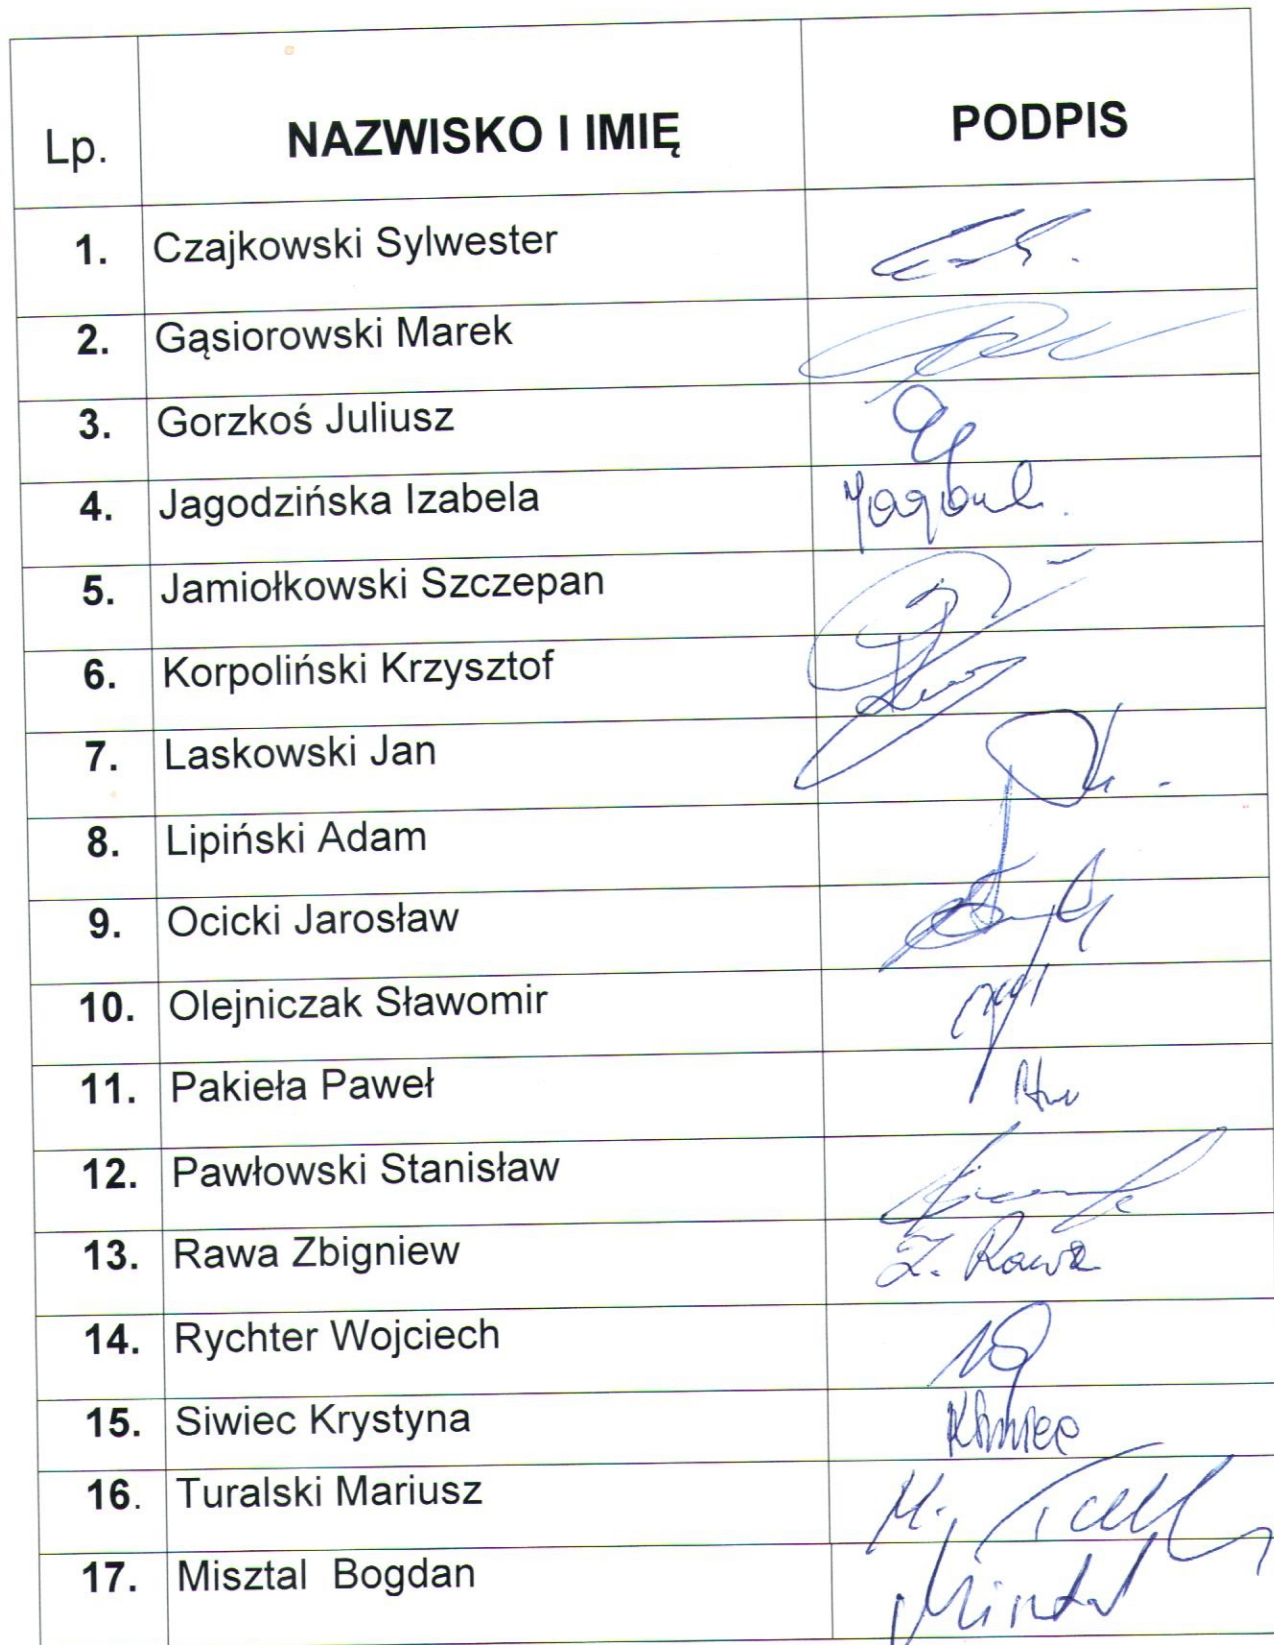 Lp. NAZWISKO I IMIĘ PODPIS
1. Czajkowski Sylwester
2. Gąsiorowski Marek
3. Gorzkoś Juliusz
4. Jagodzińska Izabela
5. Jamiołkowski Szczepan
6. Korpoliński Krzysztof
7. Laskowski Jan
8. Lipiński Adam
9. Ocicki Jarosław
10. Olejniczak Sławomir
11. Pakieła Paweł
12. Pawłowski Stanisław
13. Rawa Zbigniew Z. Rawa
14. Rychter Wojciech
15. Siwiec Krystyna
16. Turalski Mariusz
17. Misztal Bogdan